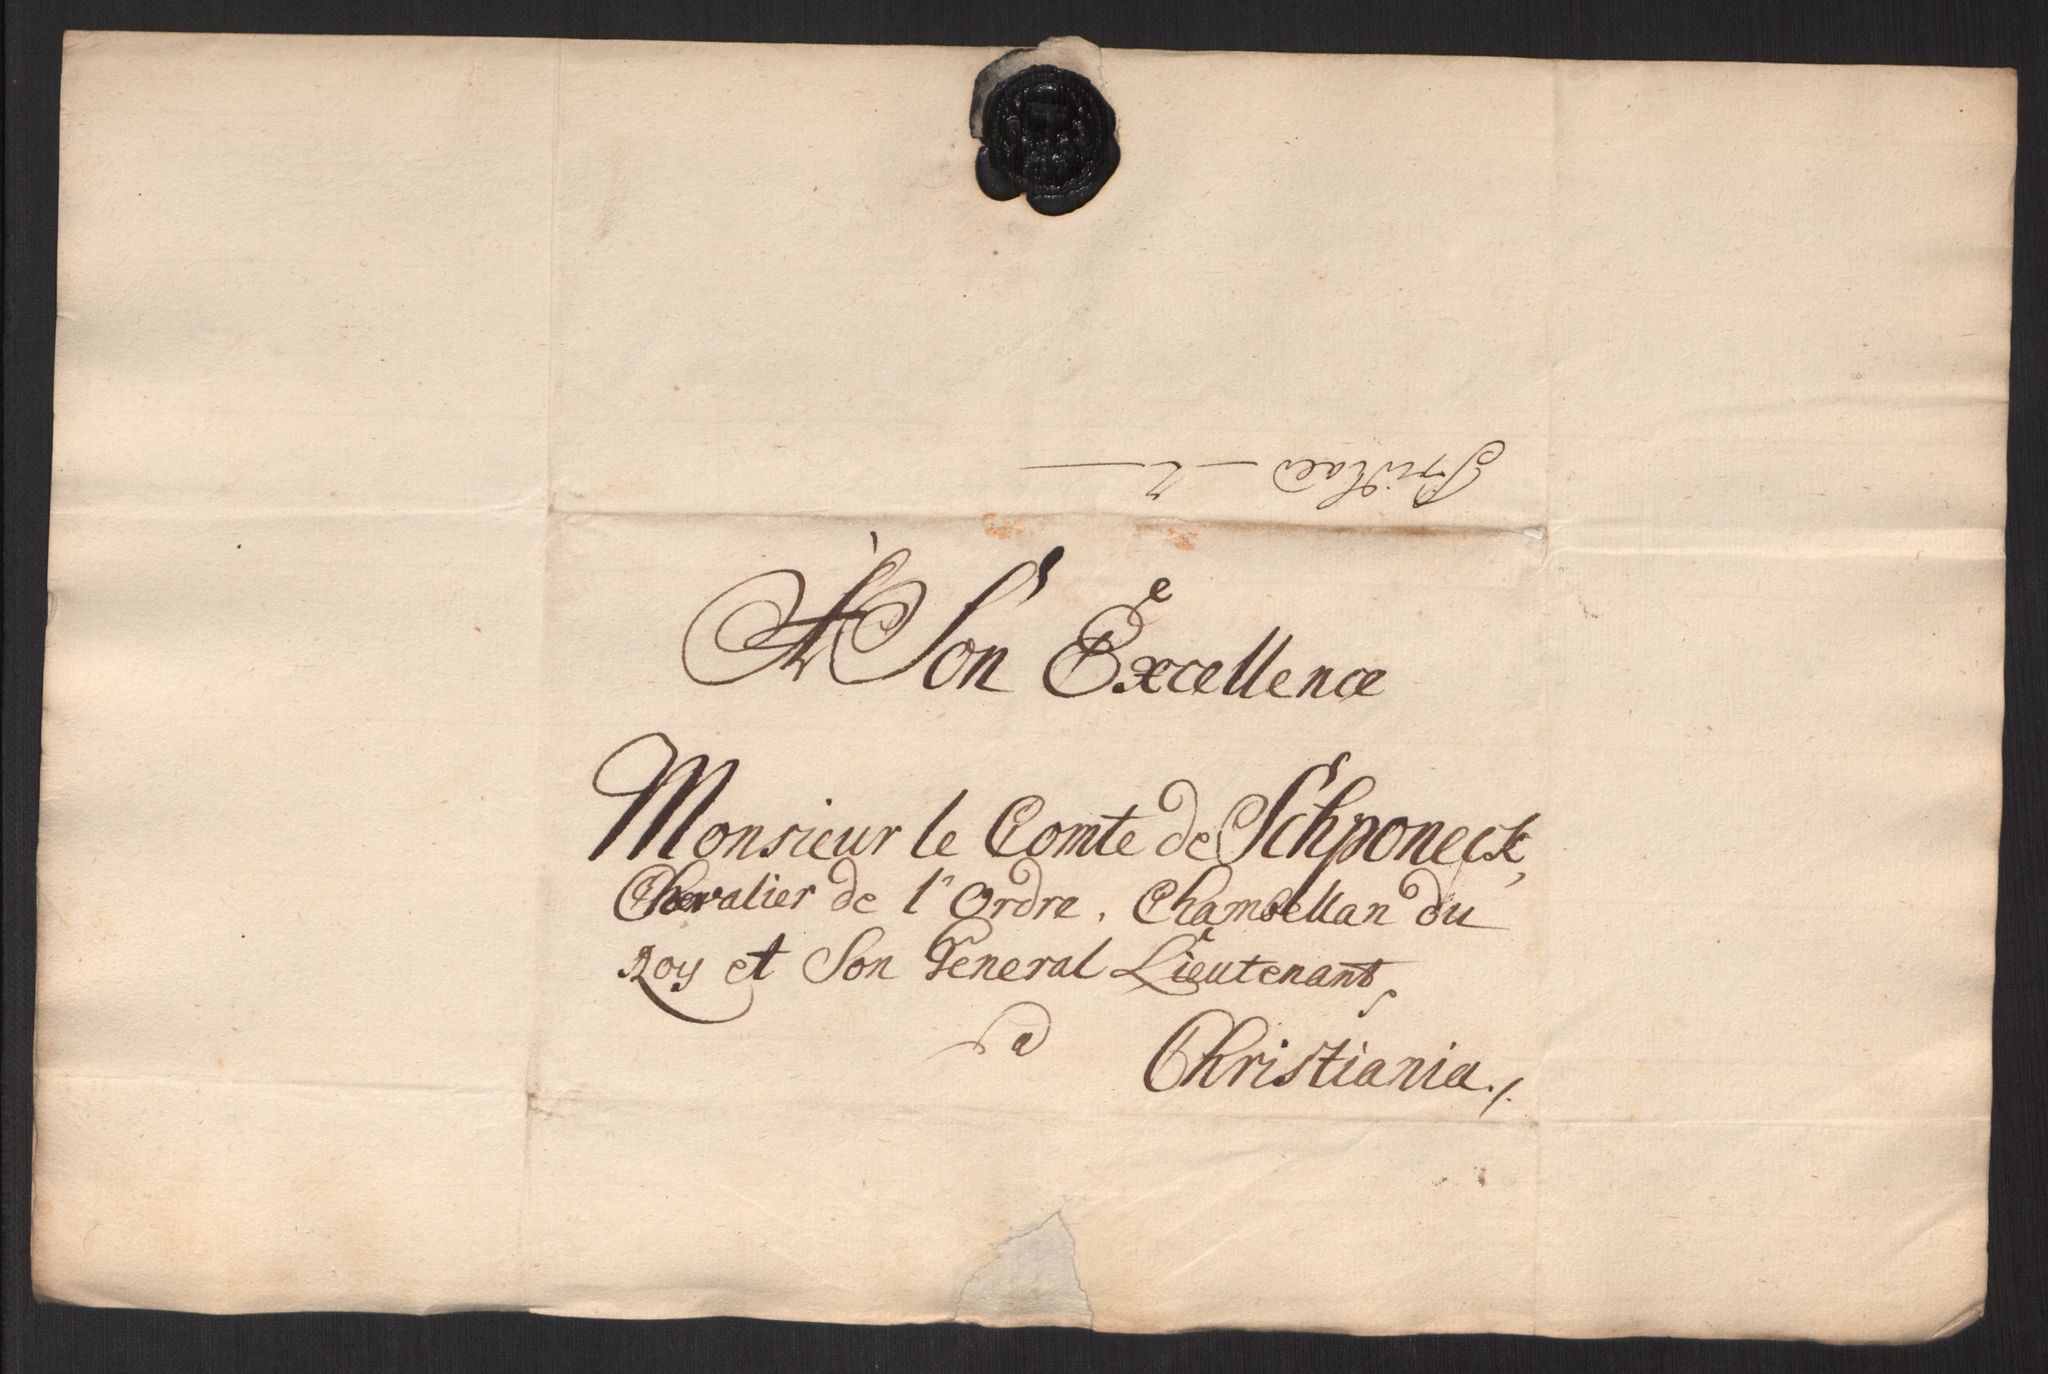 A Son Excellence
Monsieur le Comte de Schponeck,
Chevalier de l'Ordre, Chambellan du
Roy et Son General Lieutenant,
a
Christiania ./.